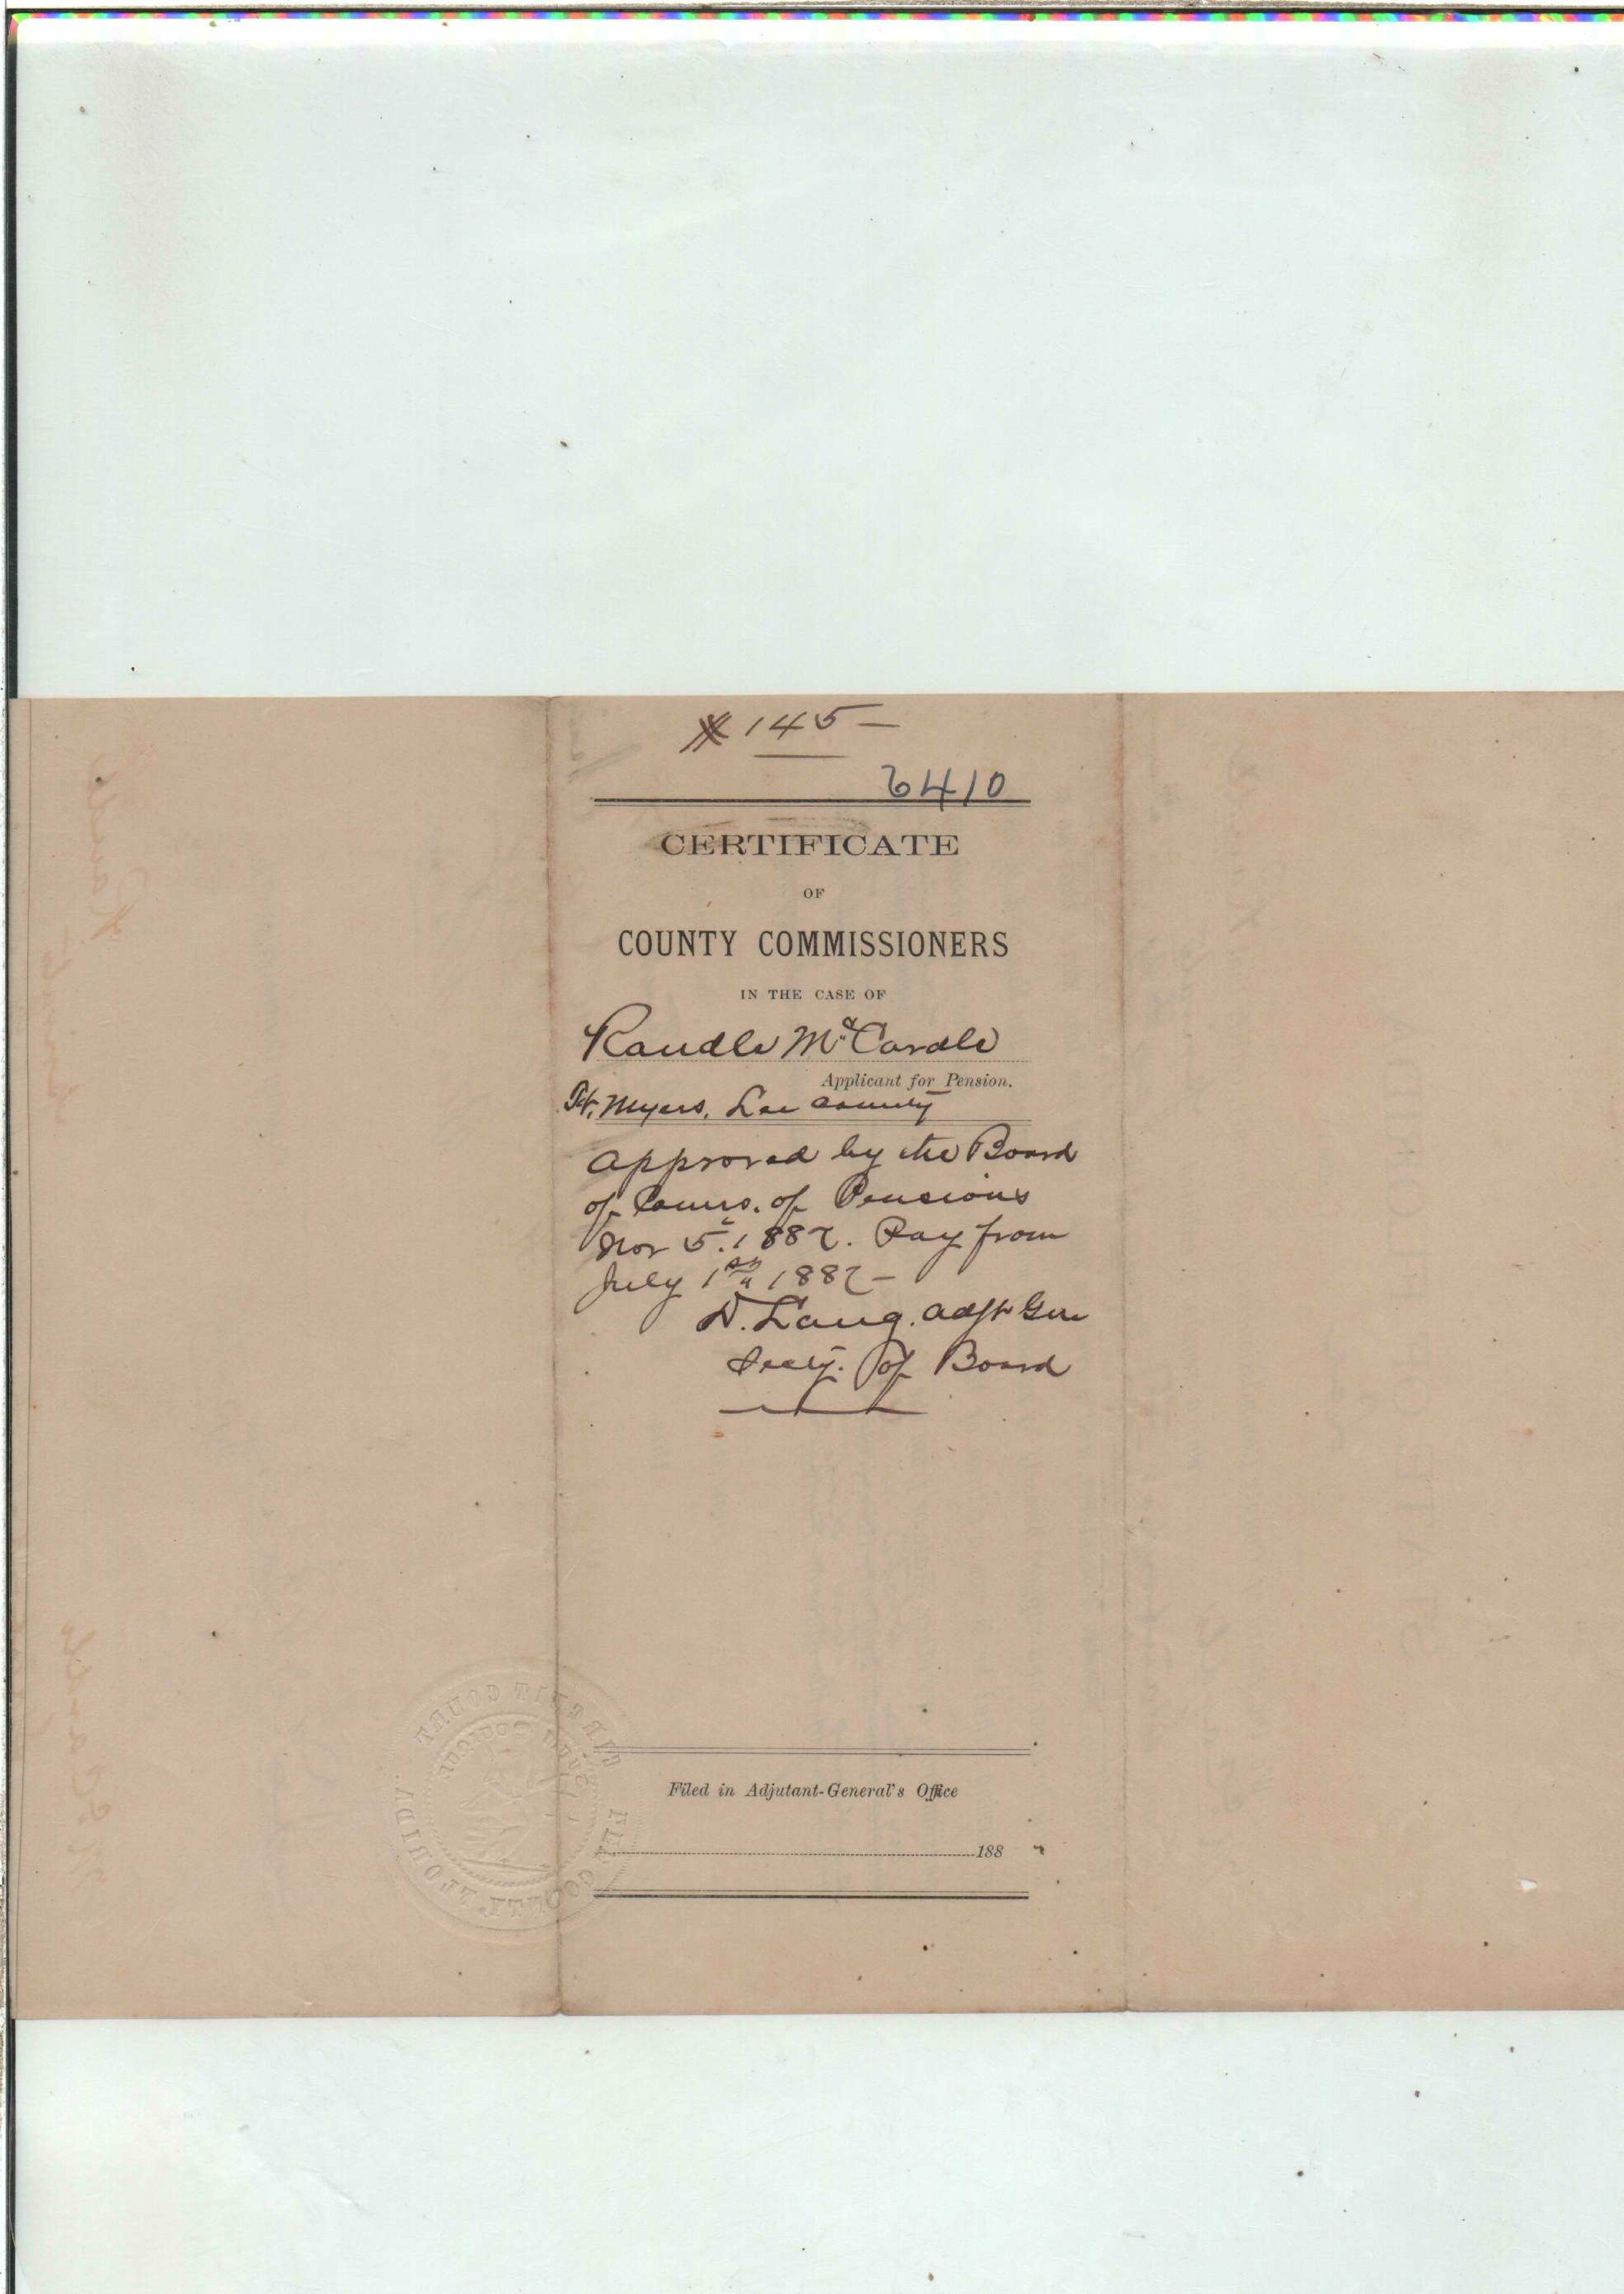 # 145 —
6410
CERTIFICATE
OF
COUNTY COMMISSIONERS
IN THE CASE OF
Randle McCardle
Applicant for Pension.
Ft. Myers, Lee County
Approved by the Board
of Comrs. of Pensions
Nov 5. 1887. Pay from
July 1st 1887 —
D. Lang. Adjt Gen
Secty. of Board
Filed in Adjutant-General's Office
188
CIRCUIT COURT
LEE COUNTY FLORIDA